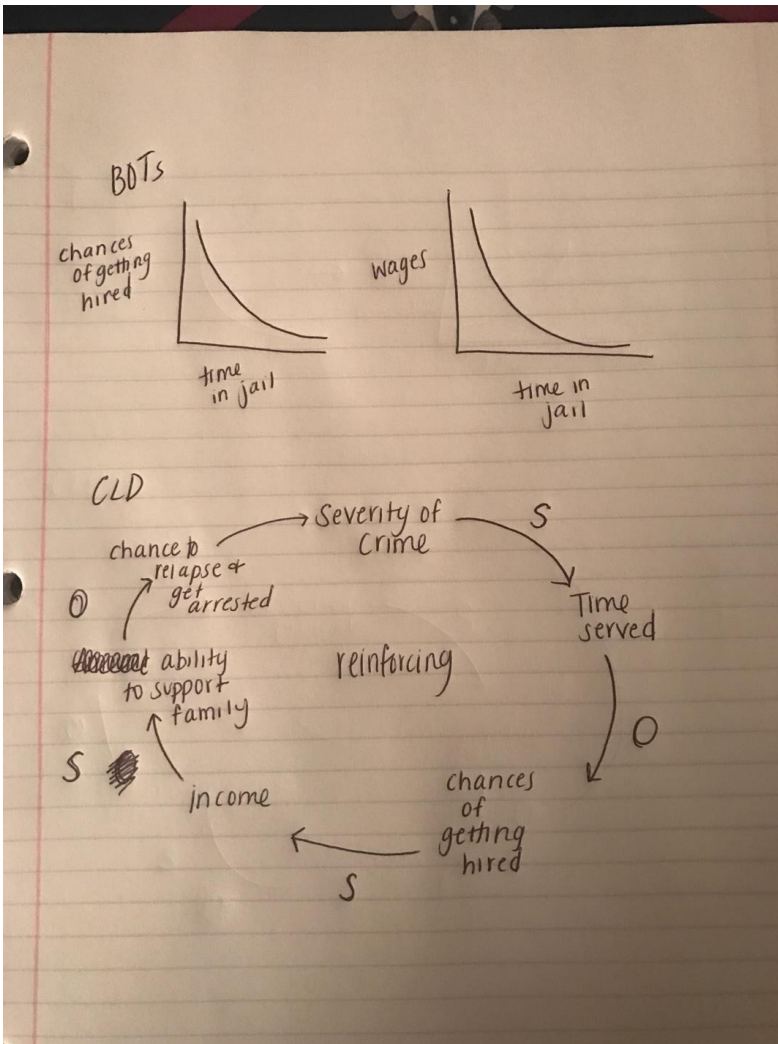 BOTs
chances
of getting
hired
time
in jail
wages
time in
jail
CLD
Severity of
Crime
S
Time
served
O
chances
of
getting
hired
S
income
S
ability
to support
family
O
chance to
relapse &
get
arrested
reinforcing